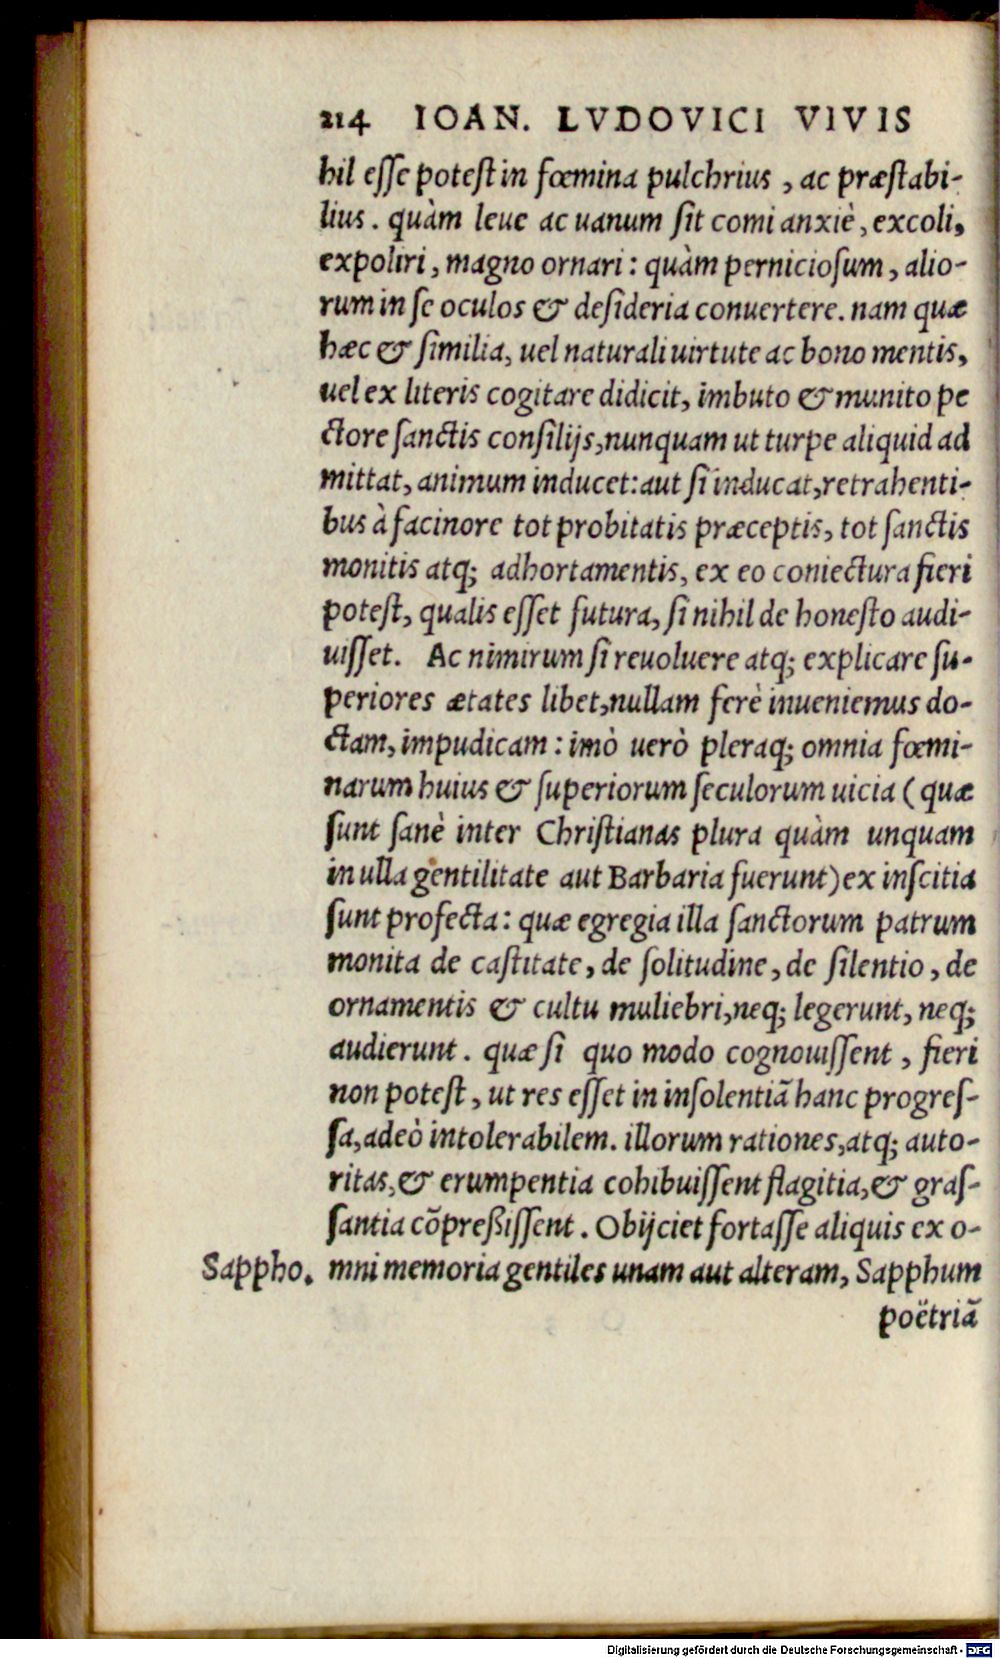 214 IOAN. LVDOVICI VIVIS
hil eſſe poteſt in fœmina pulchrius , ac præſtabi-
lius . quàm leue ac uanum ſit comi anxiè , excoli,
expoliri , magno ornari : quàm pernicioſum , alio-
rum in ſe oculos & deſideria conuertere. nam quæ
hæc & ſimilia, uel naturali uirtute ac bono mentis,
uel ex literis cogitare didicit, imbuto & munito pe
ctore ſanctis conſilijs,nunquam ut turpe aliquid ad
mittat, animum inducet:aut ſi inducat,retrahenti-
bus à facinore tot probitatis præceptis, tot ſanctis
monitis atq; adhortamentis, ex eo coniectura fieri
poteſt, qualis eſſet futura, ſi nihil de honeſto audi-
uiſſet. Ac nimirum ſi reuoluere atq; explicare ſu-
periores ætates libet,nullam ferè inueniemus do-
ctam, impudicam : imò uerò pleraq; omnia fœmi-
narum huius & ſuperiorum ſeculorum uicia ( quæ
ſunt ſanè inter Chriſtianas plura quàm unquam
in ulla gentilitate aut Barbaria fuerunt) ex inſcitia
ſunt profecta : quæ egregia illa ſanctorum patrum
monita de caſtitate , de ſolitudine , de ſilentio , de
ornamentis & cultu muliebri,neq; legerunt, neq;
audierunt . quæ ſi quo modo cognouiſſent , fieri
non poteſt , ut res eſſet in inſolentiã hanc progreſ-
ſa,adeò intolerabilem. illorum rationes,atq; auto-
ritas,& erumpentia cohibuiſſent flagitia,& graſ-
ſantia cõpreßiſſent . Obijciet fortaſſe aliquis ex o-
Sappho. mni memoria gentiles unam aut alteram, Sapphum
poëtriã
Digitalisierung gefördert durch die Deutsche Forschungsgemeinschaft - DFG